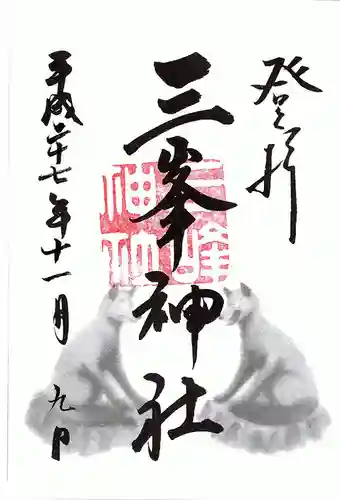 登拝
三峯神社
平成二十七年十一月九日